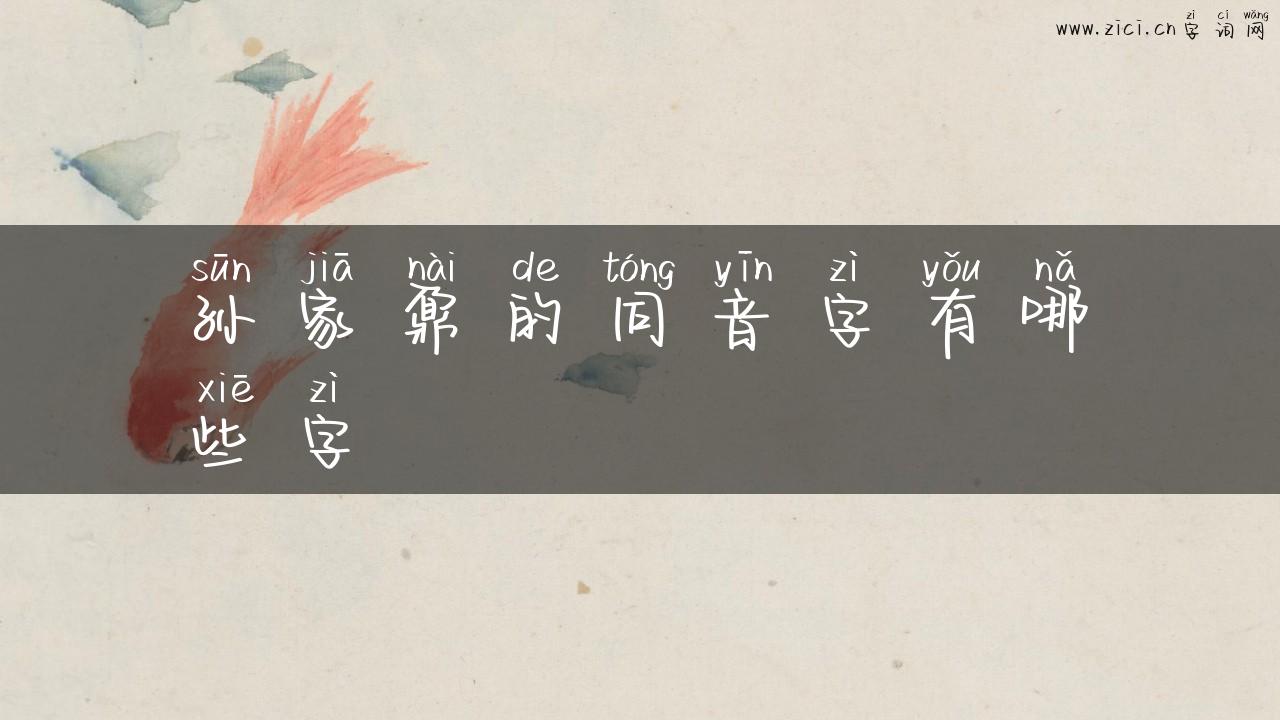 zì cí wǎng
www.zici.cn 字词网
sūn jiā nài de tóng yīn zì yǒu nǎ
孙家鼐的同音字有哪
xiē zì
些字